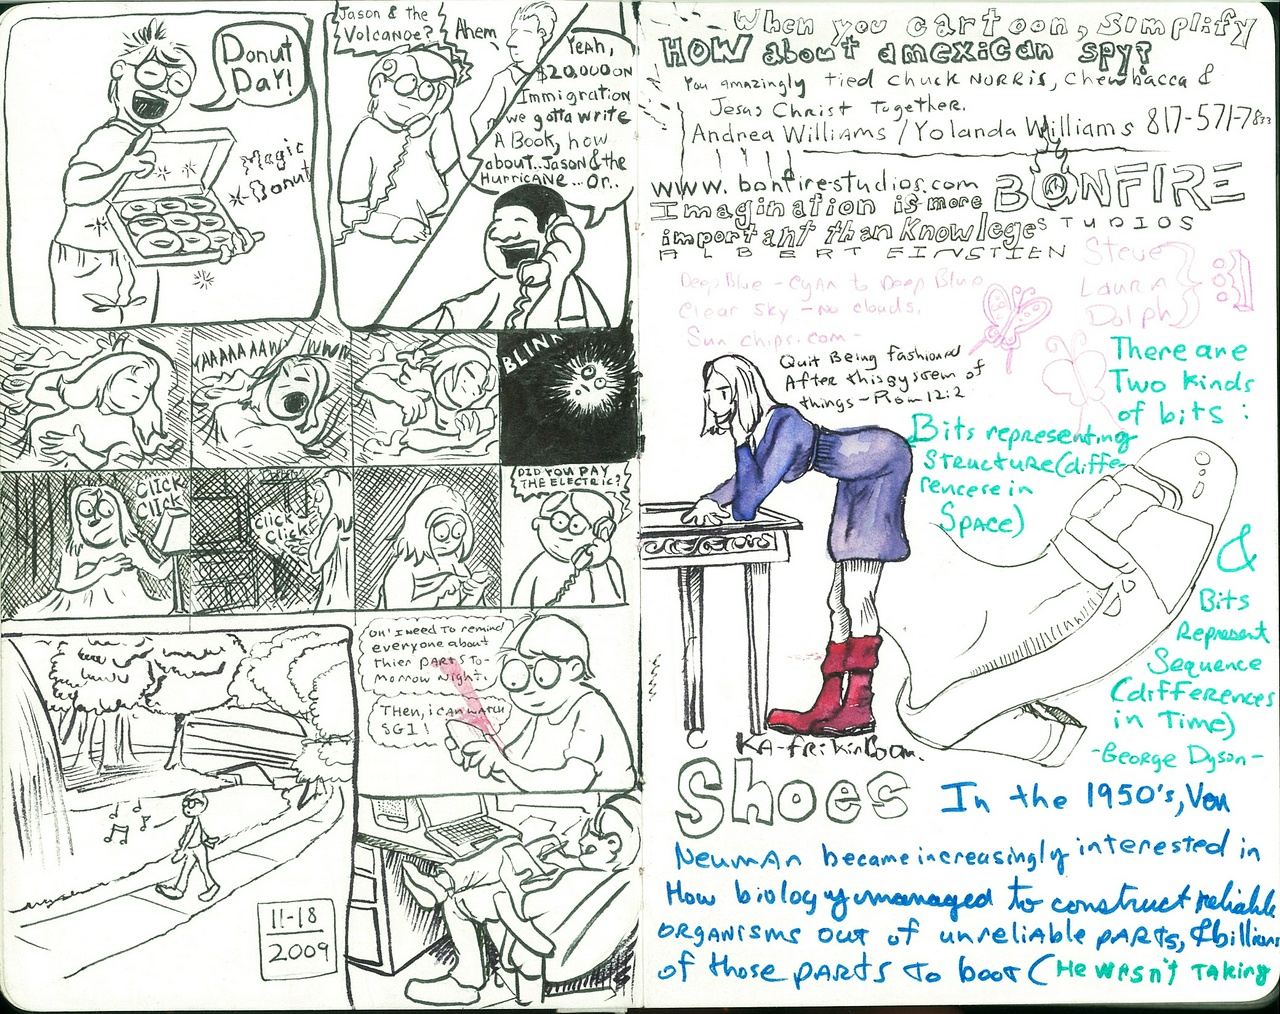 Donut
Day!
Magic
Donut
Jason & the
Volcanoe?
Ahem
Yeah,
$20,000 on
Immigration
we gotta write
A Book, how
about..Jason & the
Hurricane...or..
YAAAAAAWWWWN
BLINK
CLICK
CLICK
Click
Click
DID YOU PAY
THE ELECTRIC?
OH! I need to remind
everyone about
thier parts to-
morrow night.
Then, i can watch
SG1!
11-18
2009
When you cartoon, simplify
HOW about a mexican spy?
You amazingly tied Chuck Norris, Chewbacca &
Jesus Christ Together.
Andrea Williams / Yolanda Williams 817-571-7833
www.bonfirestudios.com
BONFIRE
STUDIOS
Imagination is more
important than Knowlege
ALBERT EINSTIEN
Steve
Laura
Dolph
Deep Blue - Cyan to Deep Blue
Clear sky - no clouds.
Sun chips.com -
Quit Being fashioned
After this system of
things - Rom 12:2
There are
Two kinds
of bits:
Bits representing
Structure (diffe-
rencese in
Space)
&
Bits
Represent
Sequence
(differences
in Time)
-George Dyson-
KA-frikinBoom.
Shoes
In the 1950's, Von
Neuman became increasingly interested in
How biology managed to construct reliable
organisms out of unreliable parts, & billions
of those parts to boot (He wasn't taking